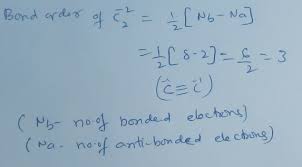 Bond order of C₂⁻² = 1/2 [Nb - Na]
= 1/2 [8 - 2] = 6/2 = 3
(C̄ ≡ C̄)
(Nb - no. of bonded electrons)
(Na - no. of anti-bonded electrons)